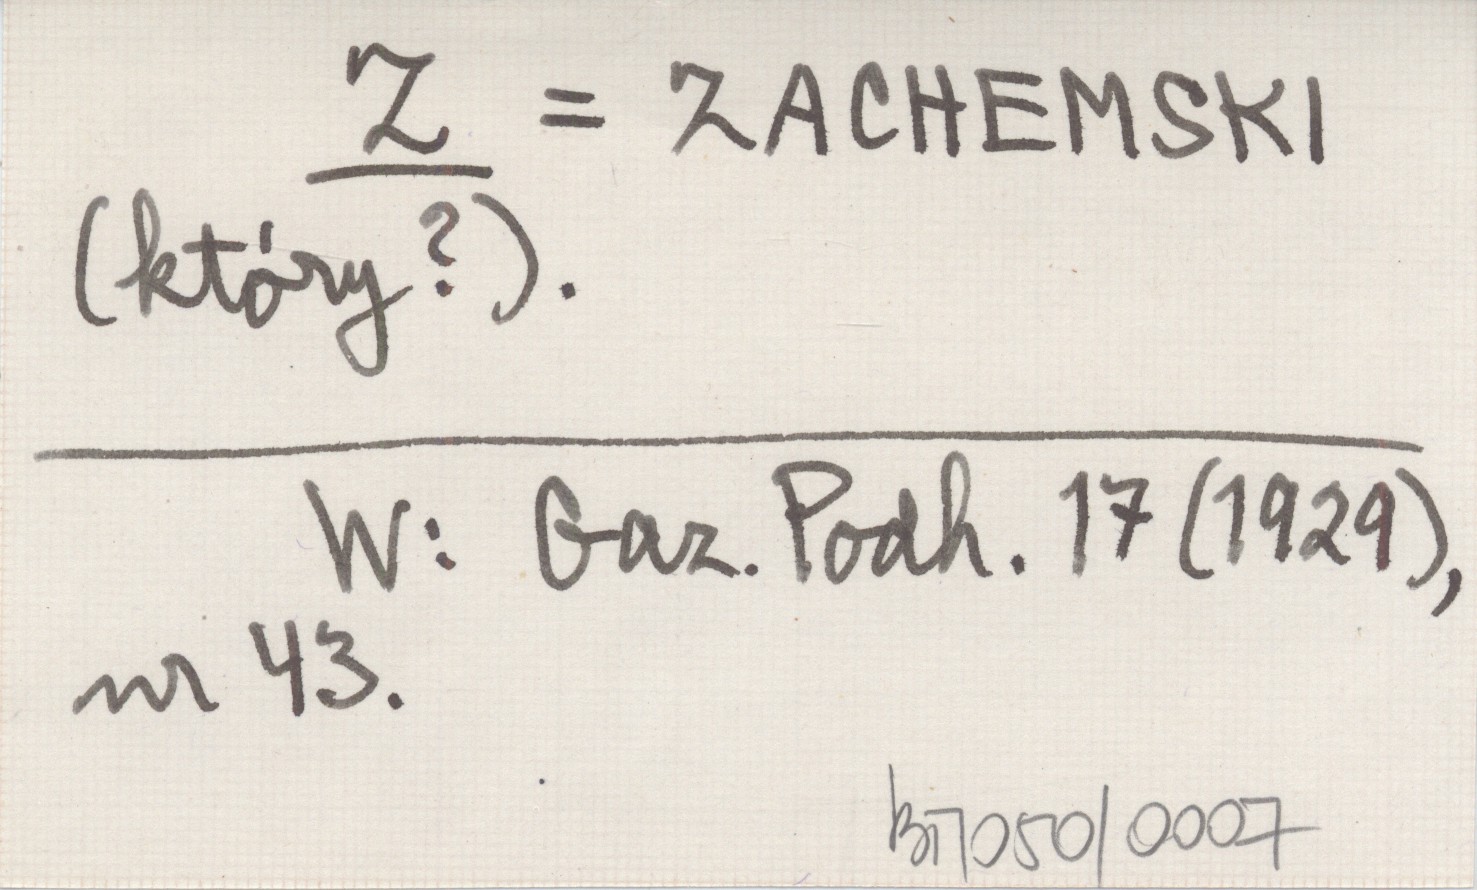 Z = ZACHEMSKI
(który?).
W: Gaz. Podh. 17 (1929),
nr 43.
050/0007